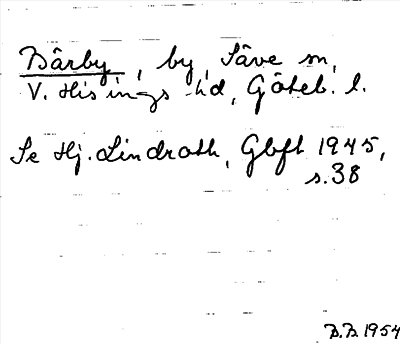 Bärby, by, Säve sn,
V. Hisings hd, Göteb. l.
Se Hj. Lindroth, Gbft 1945,
s. 38
B.B. 1954